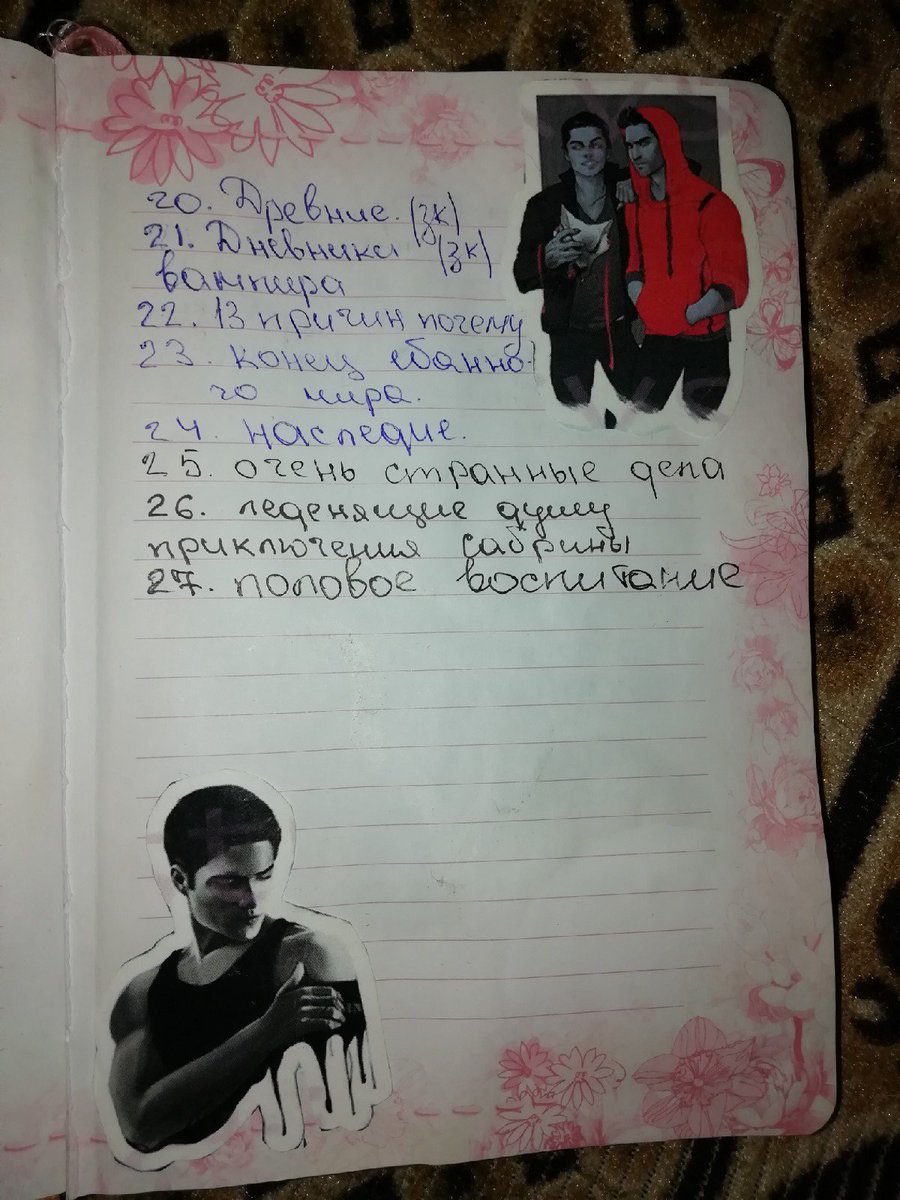 20. Древние. (зк)
21. Дневники (зк)
вампира
22. 13 причин почему
23. конец ебанно-
го мира.
24. наследие.
25. очень странные дела
26. леденящие душу
приключения сабрины
27. половое воспитание